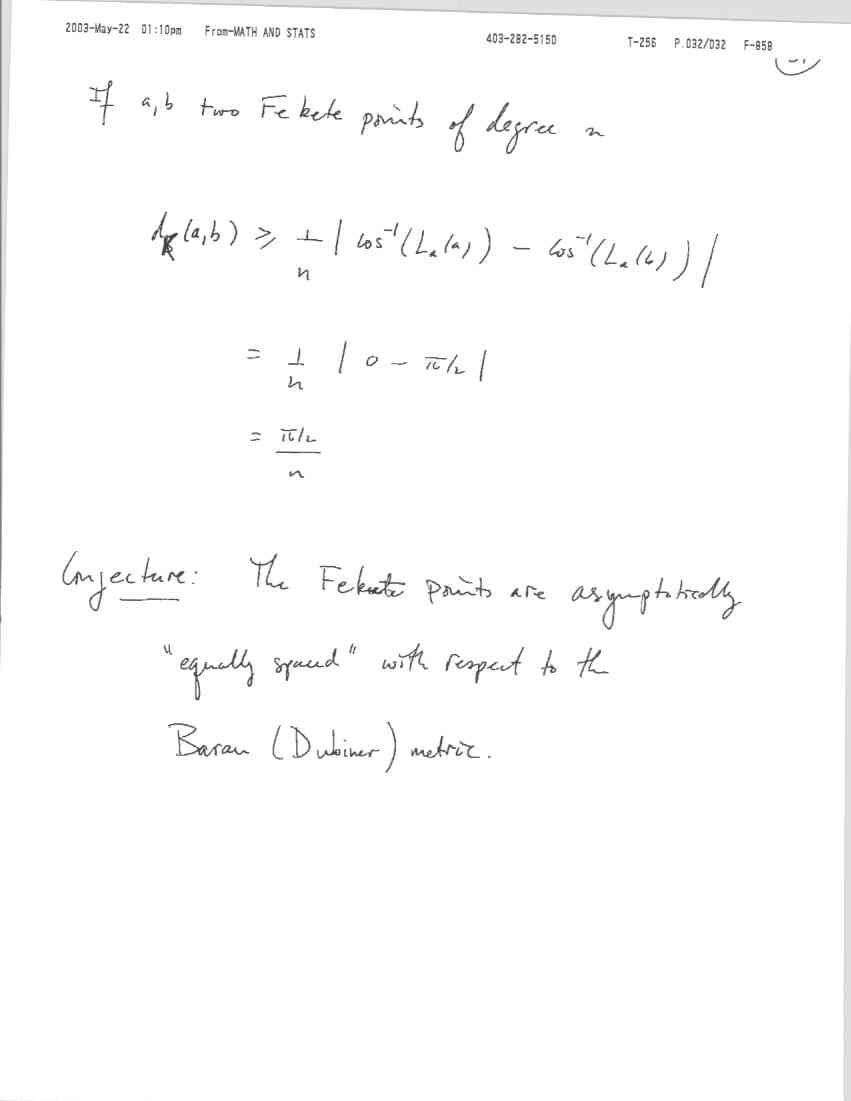 2003-May-22 01:10pm From-MATH AND STATS 403-282-5150 T-256 P.032/032 F-858
If a,b two Fekete points of degree n
d_K(a,b) ≥ 1/n | cos⁻¹(L_a(a)) - cos⁻¹(L_a(b)) |
= 1/n | 0 - π/2 |
= π/2 / n
Conjecture: The Fekete points are asymptotically
"equally spaced" with respect to the
Baran (Dubiner) metric.